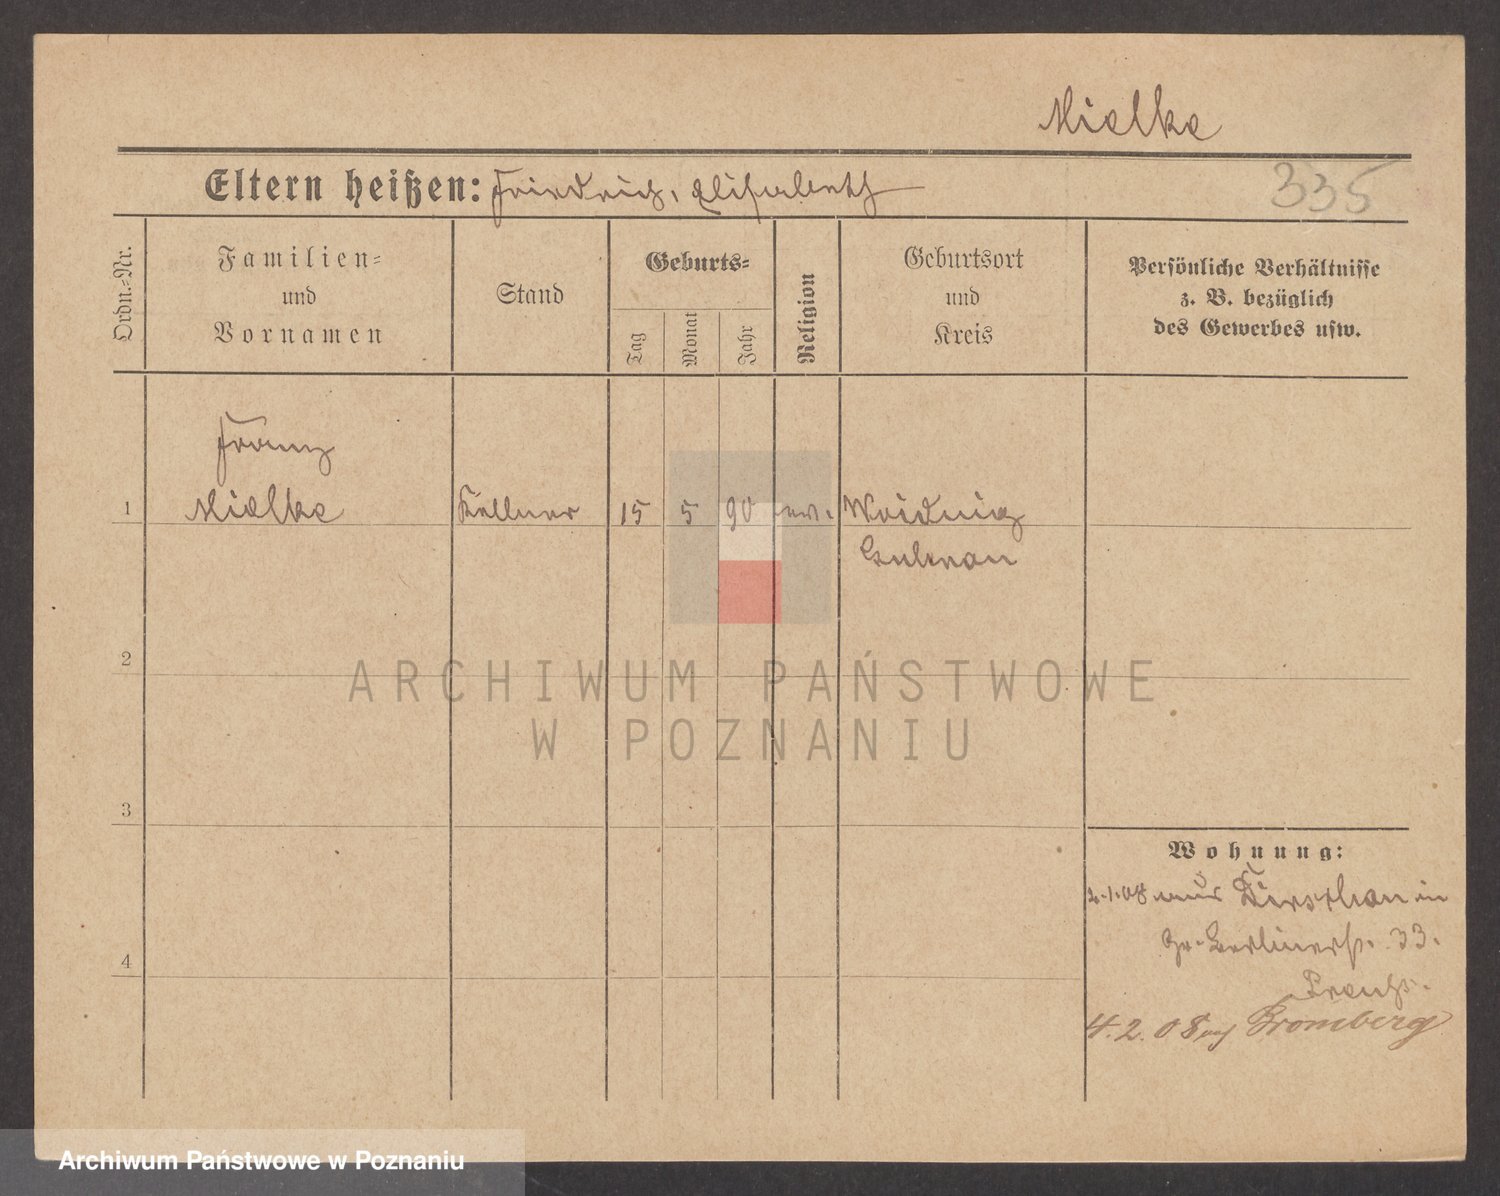 Mielke
Eltern heißen: Friedrich, Elisabeth
335
Ordn.-Nr.
Familien-
und
Vornamen
Stand
Geburts-
Tag
Monat
Jahr
Religion
Geburtsort
und
Kreis
Persönliche Verhältnisse
z. B. bezüglich
des Gewerbes usw.
Franz
1 Mielke Kellner 15 5 90 ev.
2
3
4
Wohnung:
2.1.08 aus in
Gr. Berlinerstr. 33.
4.2.08 Bromberg
ARCHIWUM PAŃSTWOWE
W POZNANIU
Archiwum Państwowe w Poznaniu